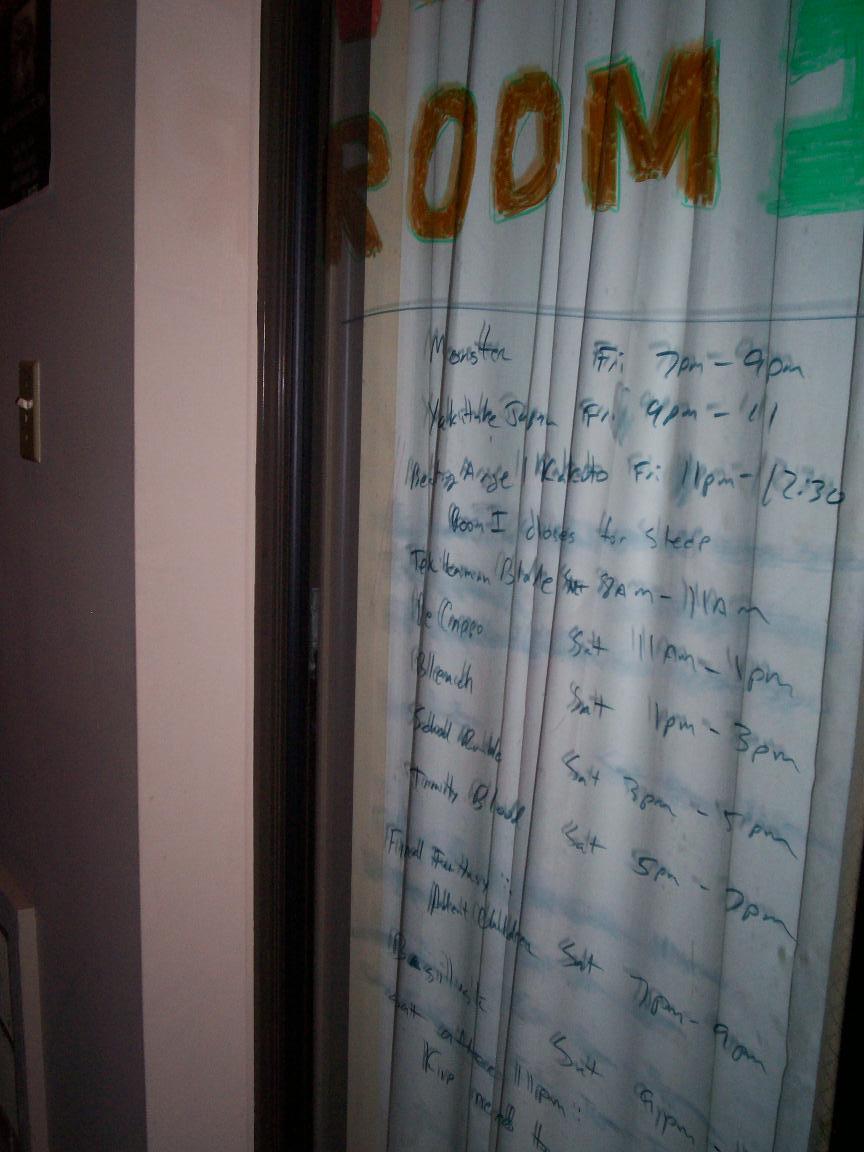 ROOM
Monster Fri 7pm - 9pm
Yakitate Japan Fri 9pm - 11
Fri 11pm - 12:30
Room I closes for Sleep
Blade Sat 8AM - 11AM
Sat 11AM - 1pm
Bleach Sat 1pm - 3pm
School Rumble Sat 3pm - 5pm
Trinity Blood Sat 5pm - 7pm
Final Fantasy:
Advent Children Sat 7pm - 9pm
Basilisk Sat 9pm -
Sat after 11pm: